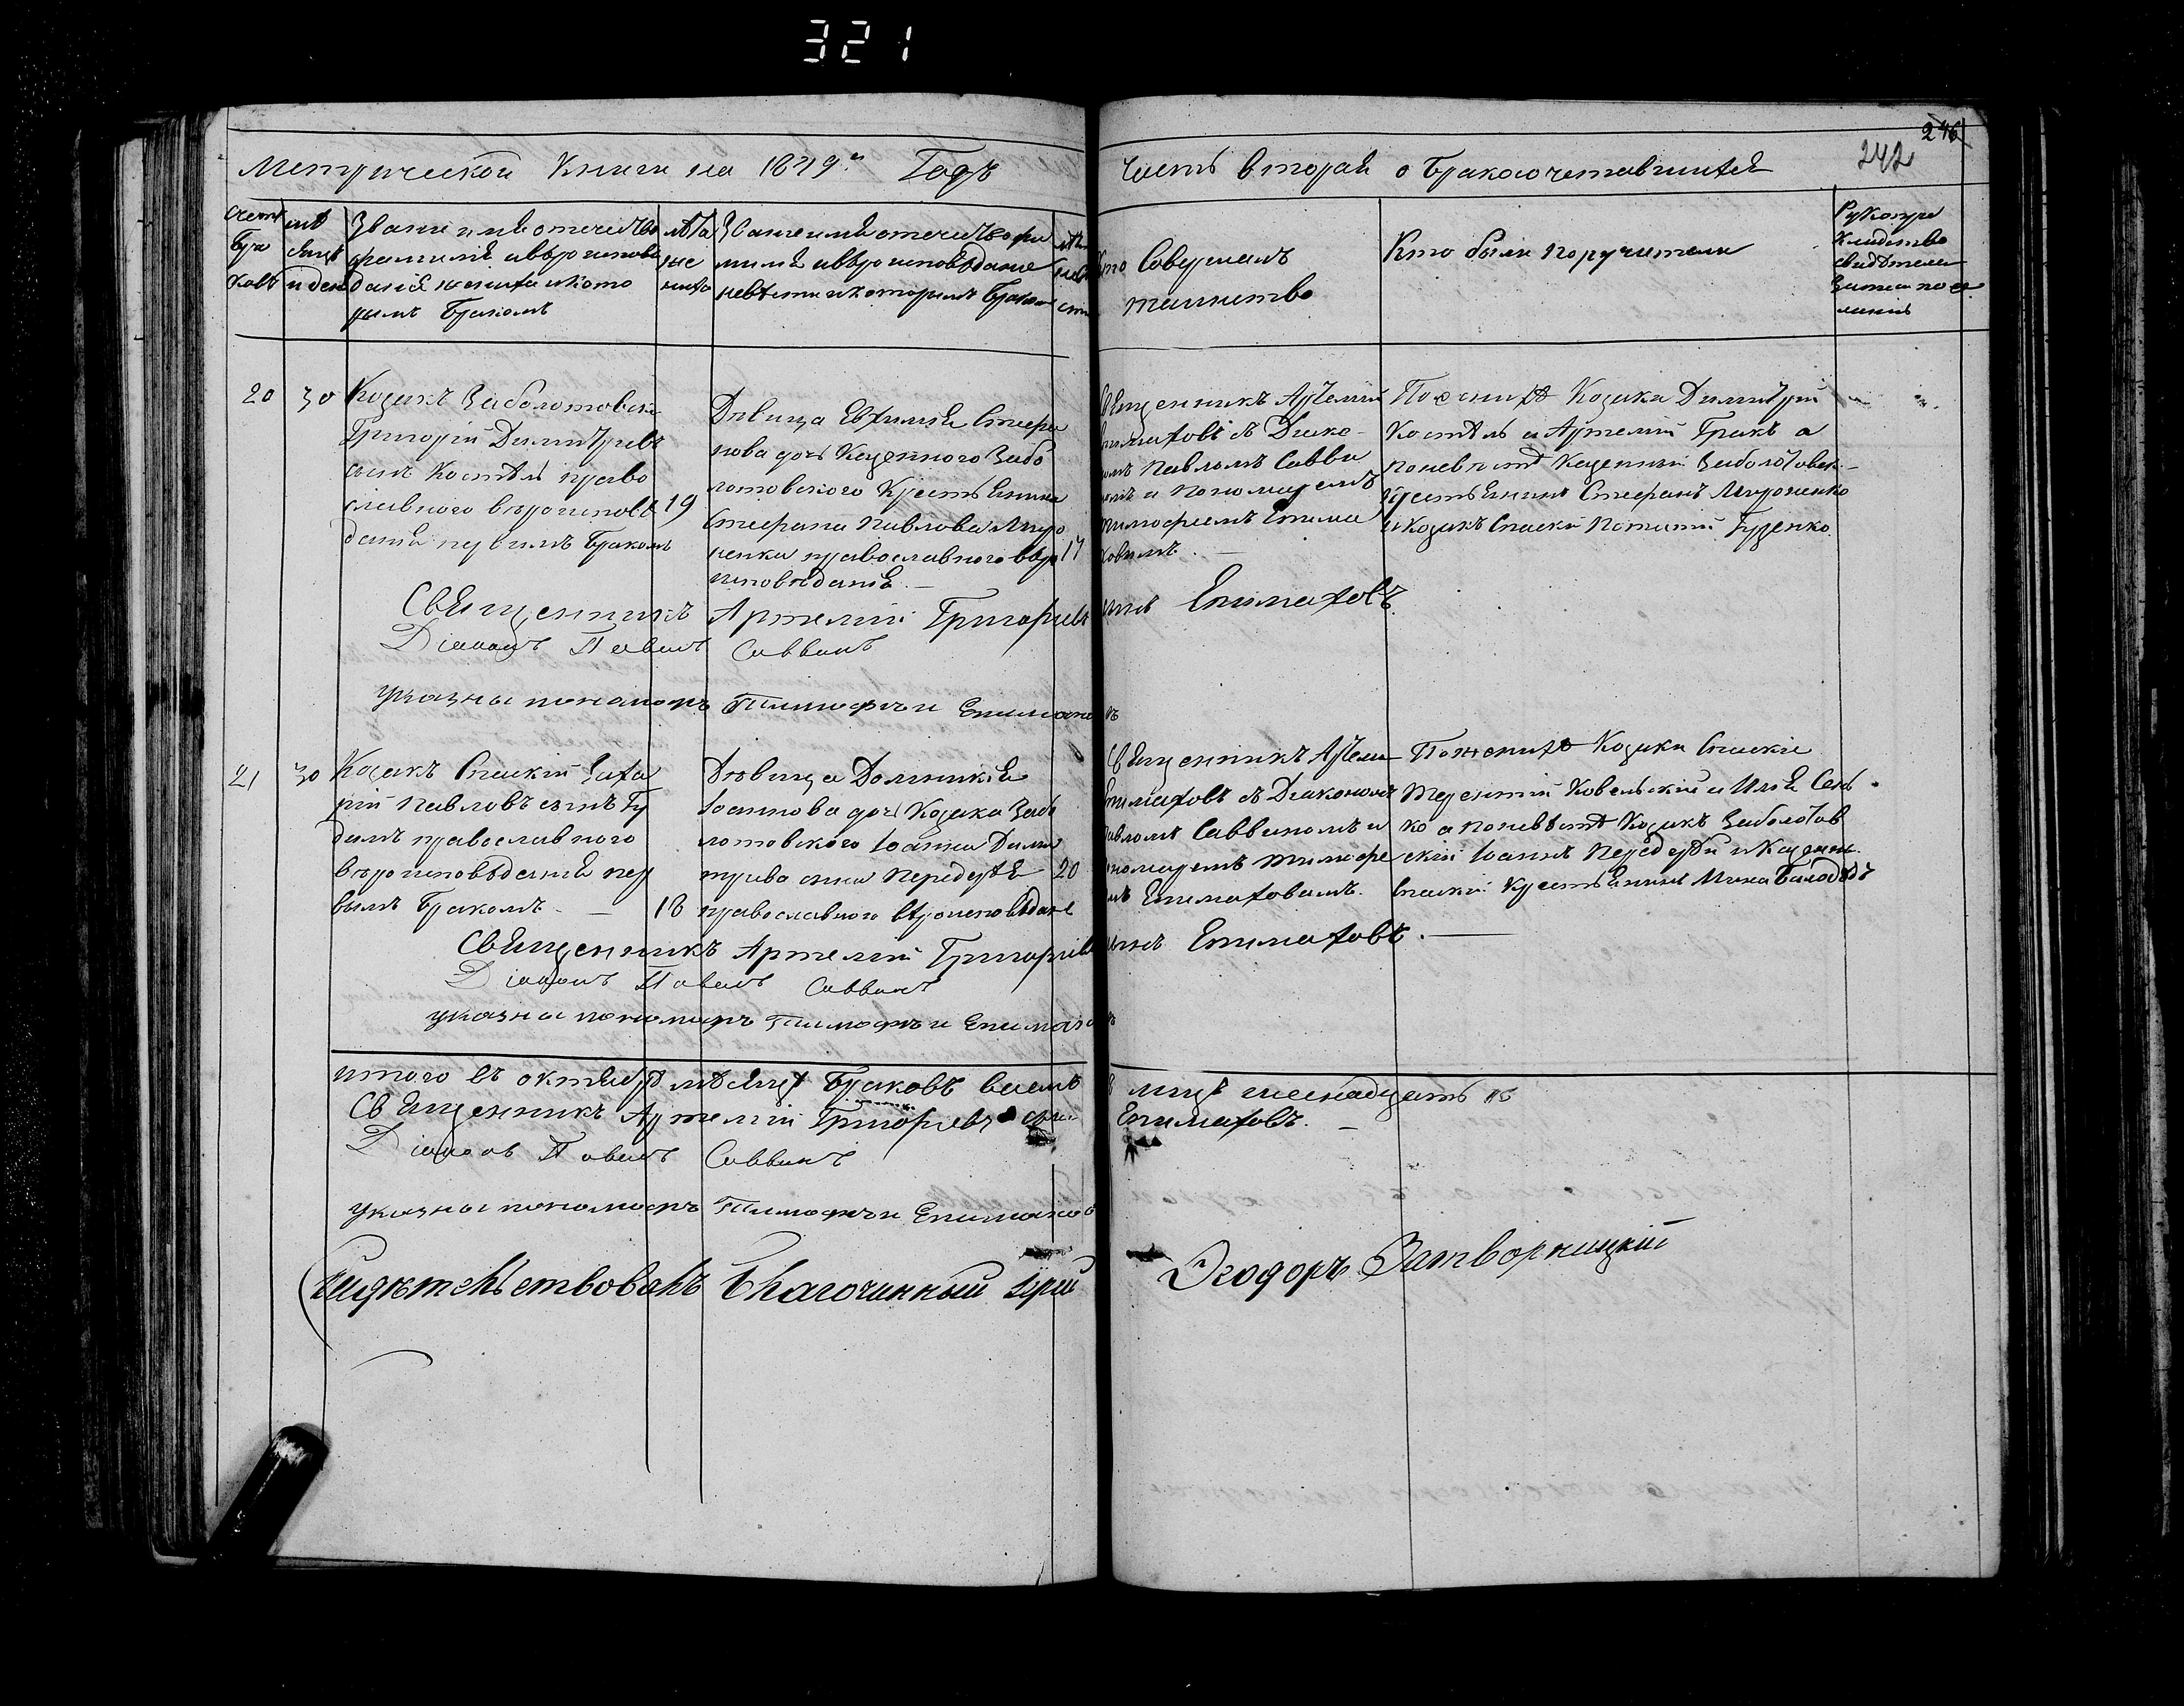 321
Метрической Книги на 1849й Годъ
Часть вторая о бракосочетавшихся
242
246
Счетъ
бра
ковъ
мѣ
сяцъ
и день
Званіе имя отечество
фамилія и вѣроиспове
даніе жениха и кото
рымъ бракомъ
лѣта
же
ниха
Званіе имя отечество фа
милія и вѣроисповѣданіе
невѣсты и которымъ бракомъ
Кто Совершалъ
таинство
Кто были поручители
Рукопри
кладство
свидѣтелей
записи по же
ланію
20
30
Козакъ Заболотовскій
Григорій Димитріевъ
сынъ Костѣль право
славного вѣроисповѣ
данія первимъ бракомъ
19
Дѣвица Евфимія Стефа
нова дочь Казенного Забо
лотовского Крестьянина
Стефана Павлова Миро
ненка православного вѣро
исповѣданія
17
Священникъ Артемій
Епимаховъ съ Діако
номъ Павломъ Савви
нымъ и пономаремъ
Тимофеемъ Епима
ховымъ.
По женихѣ Козаки Димитрій
Костѣль и Артемій Гракъ а
по невѣстѣ Казенный Заболотовск
Крестьянинъ Стефанъ Мироненко
и козакъ Спаскій Потапій Гуденко
Священникъ Артемій Григорьевъ сынъ Епимаховъ
Діаконъ Павелъ Саввинъ
указны пономаръ Тимофѣи Епимаховъ
21
30
Козакъ Спаскій Заха
рій Павловъ сынъ Гу
дымъ православного
вѣроисповѣданія пер
вымъ бракомъ
18
Дѣвица Домникія
Іоаннова дочь Козака Забо
лотовского Іоанна Дими
тріева сина Передерѣя
православного вѣроисповѣданія
20
Священникъ Артемій
Епимаховъ съ Діакономъ
Павломъ Саввинымъ и
пономаремъ Тимофе
емъ Епимаховымъ.
По женихѣ Козаки Спаскіе
Терентій Ковельскій и Илія Сень
ко а по невѣстѣ Козакъ Заболотов
скій Іоаннъ Передерѣй и Казенн.
Спаскій Крестьянинъ Мина Балодѣдъ
Священникъ Артемій Григорьевъ сынъ Епимаховъ.
Діаконъ Павелъ Саввинъ
указны пономаръ Тимофѣи Епимаховъ
итого въ октябрѣ мѣсяцѣ браковъ восемь в лицѣ шеснадцать
Священникъ Артемій Григорьевъ сынъ Епимаховъ.
Діаконъ Павелъ Саввинъ
указны пономаръ Тимофѣи Епимаховъ
Свидѣтельствовалъ Благочинный Іерей Θеодоръ Затворницкій